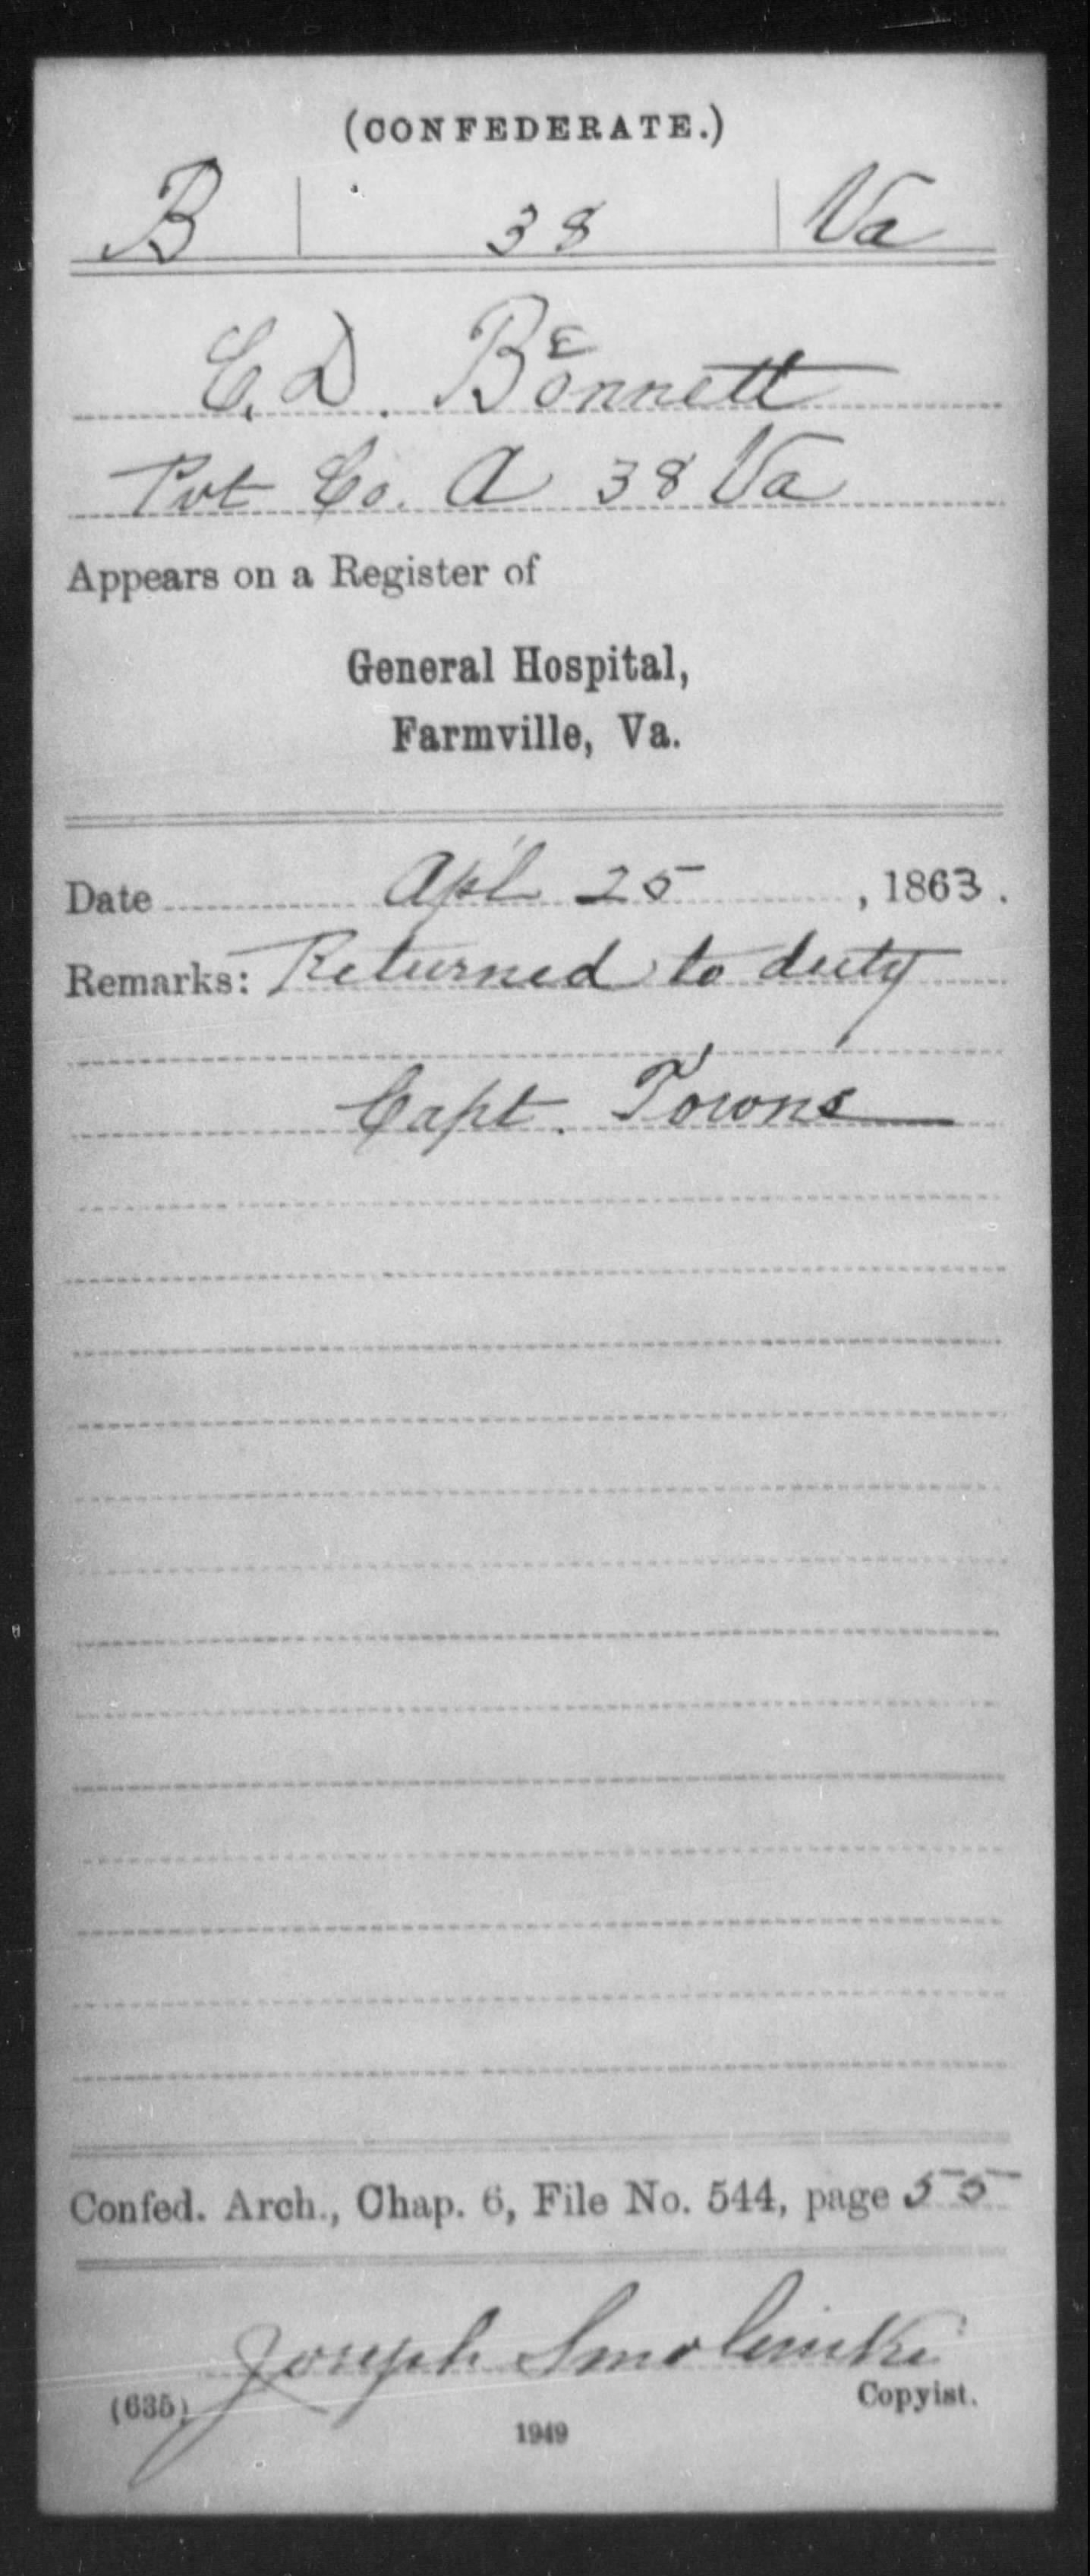 (CONFEDERATE.)
B | 38 | Va
E
C. D. Bonnett
Pvt Co. A 38 Va
Appears on a Register of
General Hospital,
Farmville, Va.
Date Apl 25, 1863.
Remarks: Returned to duty
Capt. Towns
Confed. Arch., Chap. 6, File No. 544, page 55
Joseph Smolinski
(635) Copyist.
1949